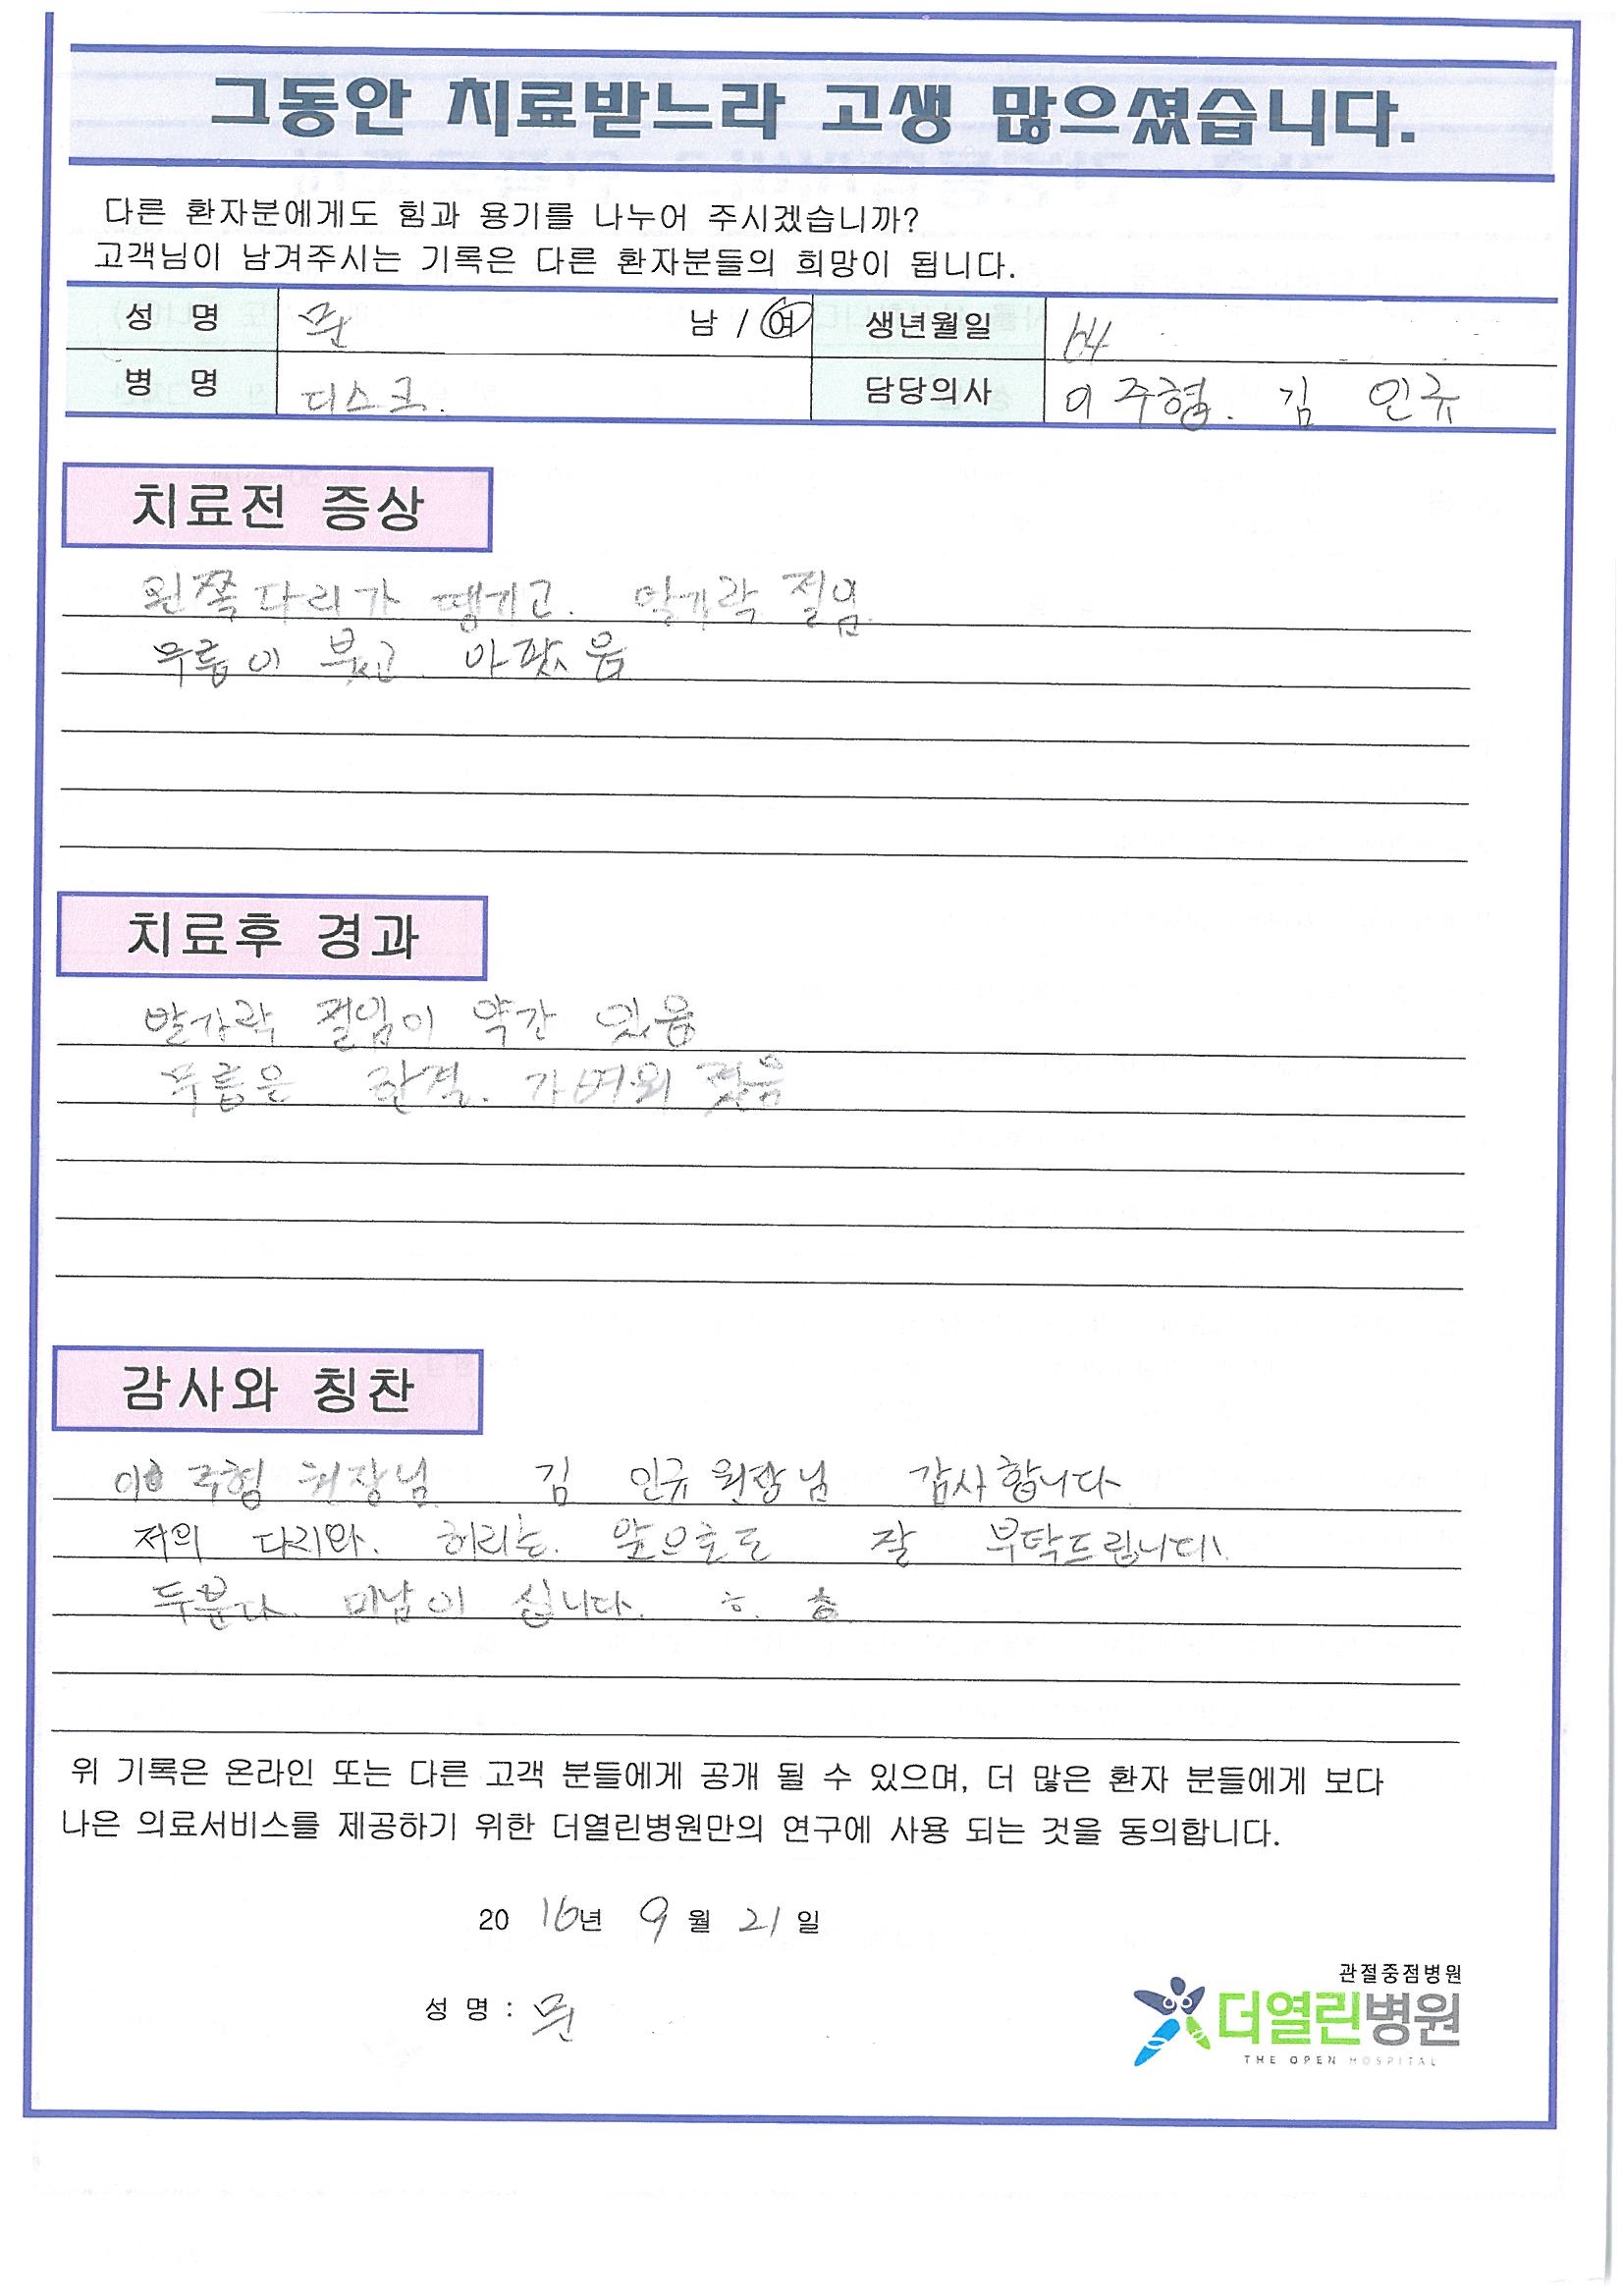 그동안 치료받느라 고생 많으셨습니다.
다른 환자분에게도 힘과 용기를 나누어 주시겠습니까?
고객님이 남겨주시는 기록은 다른 환자분들의 희망이 됩니다.
성 명 문 남 / 여 생년월일 64
병 명 디스크. 담당의사 이주형. 김 인규
치료전 증상
왼쪽다리가 땡기고. 발가락 절임.
무릎이 붓고. 아팠음
치료후 경과
발가락 절임이 약간 있음
무릎은 완쾌. 가벼워 졌음
감사와 칭찬
이 주형 원장님 김 인규 원장님 감사합니다
저의 다리와. 허리는. 앞으로도 잘 부탁드립니다.
두분다. 미남이 십니다. ㅎ. ㅎ
위 기록은 온라인 또는 다른 고객 분들에게 공개 될 수 있으며, 더 많은 환자 분들에게 보다
나은 의료서비스를 제공하기 위한 더열린병원만의 연구에 사용 되는 것을 동의합니다.
20 16년 9 월 21 일
성 명 : 문
관절중점병원
더열린병원
THE OPEN HOSPITAL